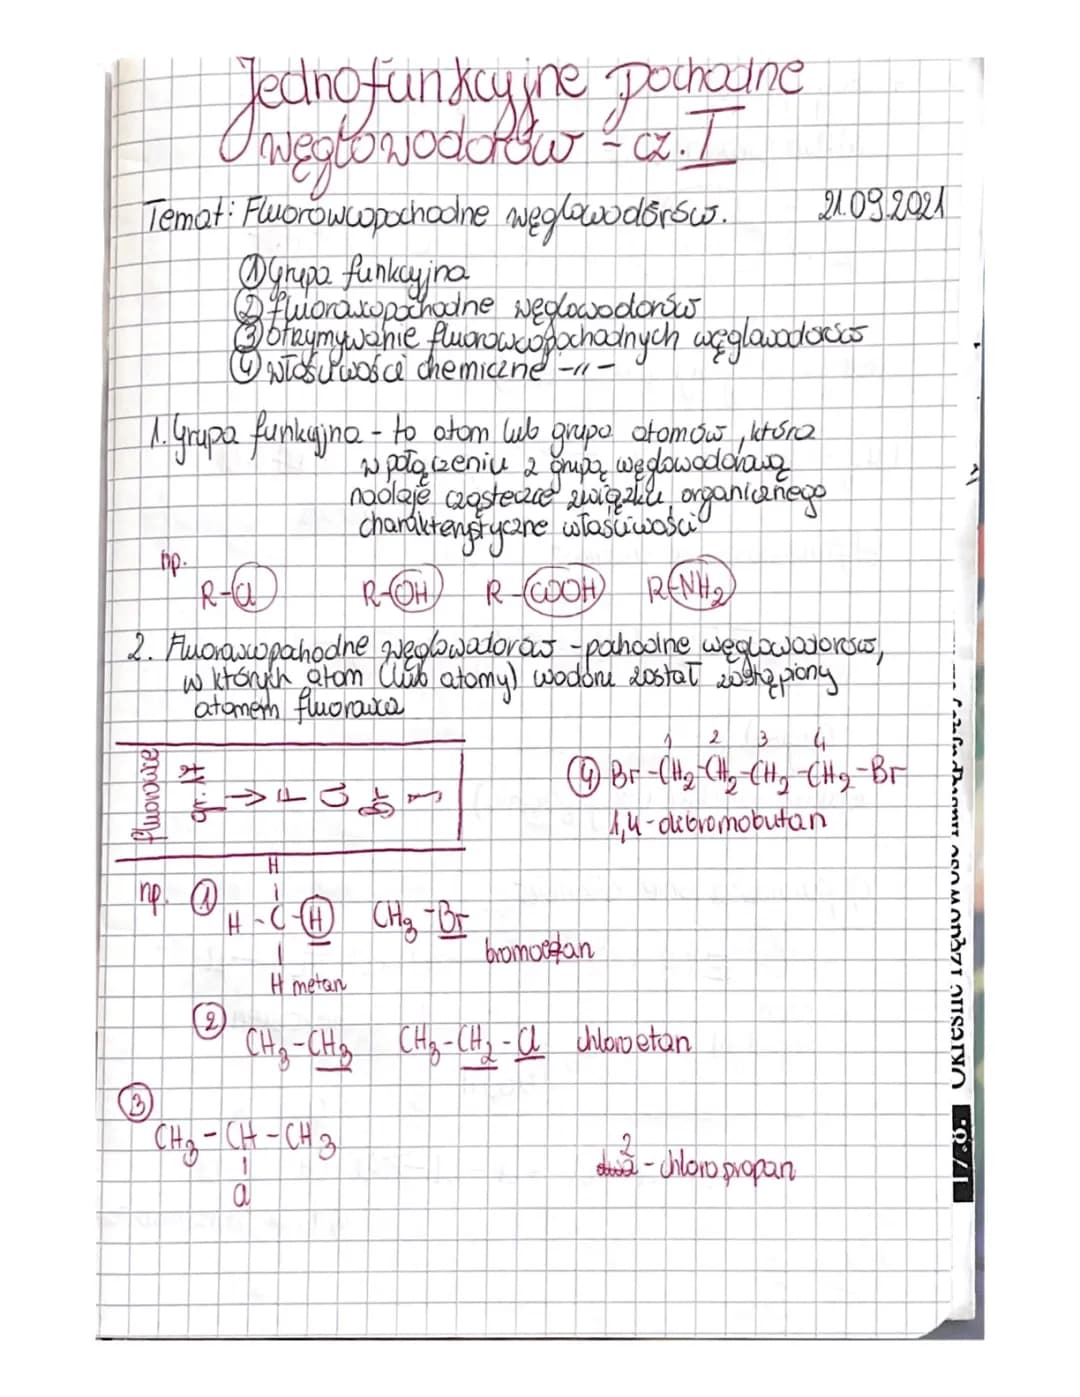 Jednofunkcyjne pochodne
węglowodorów - cz. I
Temat: Fluorowcopochodne węglowodorów. 21.09.2021
① Grupa funkcyjna
② fluorowcopochodne węglowodorów
③ otrzymywanie fluorowcopochodnych węglowodorów
④ właściwości chemiczne -11-
1. Grupa funkcyjna - to atom lub grupa atomów, która
w połączeniu z grupą węglowodorową
nadaje cząsteczce związku organicznego
charakterystyczne właściwości
np.
R-Cl R-OH R-COOH R-NH2
2. Fluorowcopochodne węglowodorów - pochodne węglowodorów,
w których atom (lub atomy) wodoru został zastąpiony
atomem fluorowca
fluorowce
gr. 17 → F Cl Br I
1 2 3 4
④ Br-CH2-CH2-CH2-CH2-Br
1,4-dibromobutan
np. ①
H
|
H-C-H CH3-Br
| bromoetan
H metan
②
CH3-CH3 CH3-CH2-Cl chloroetan
③
CH3-CH-CH3
|
Cl
2
-chloropropan
178.